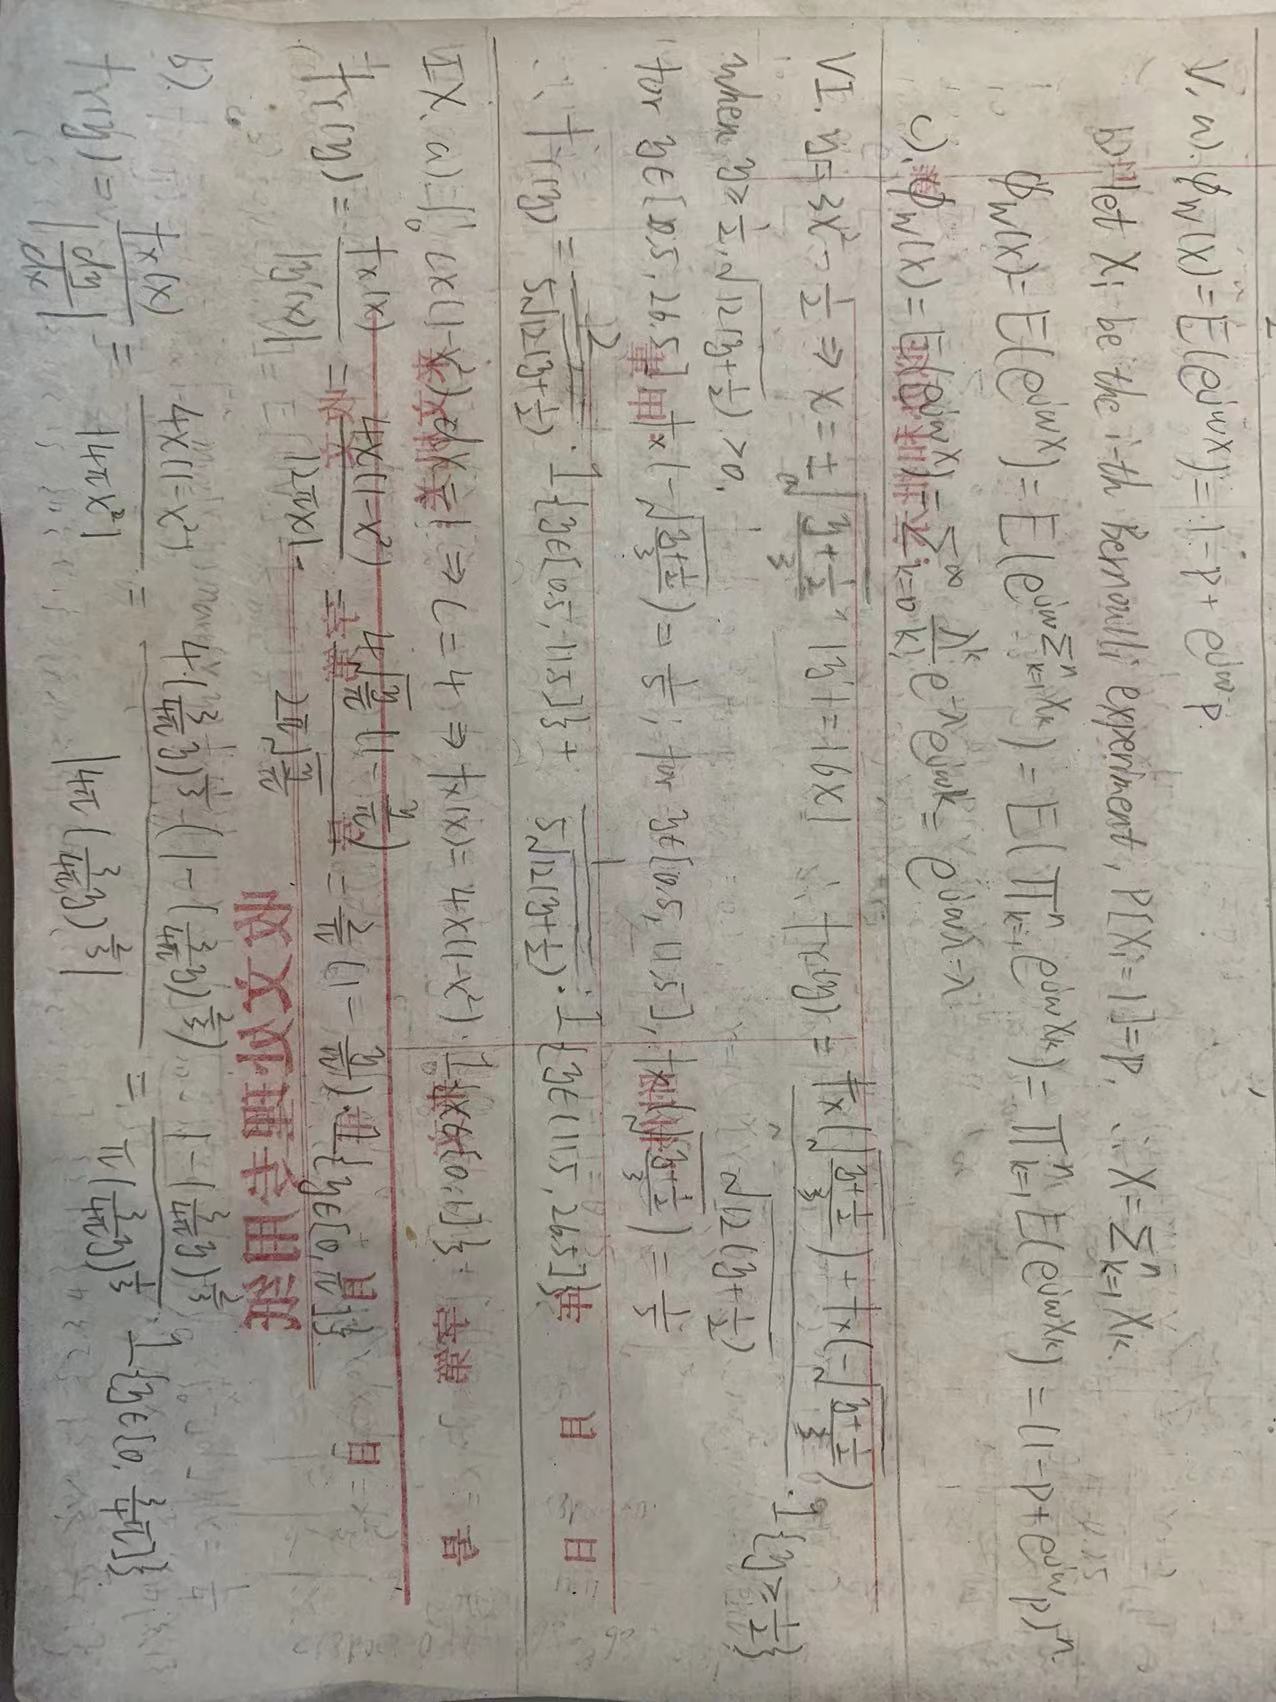 V. a). ϕ_W(X) = E(e^{jωX}) = 1-p + e^{jω}p.
b) let X_i be the i-th Bernoulli experiment, P[X_i = 1] = p, ∴ X = ∑_{k=1}^{n} X_k.
ϕ_W(X) = E(e^{jωX}) = E(e^{jω∑_{k=1}^{n} X_k}) = E(∏_{k=1}^{n} e^{jωX_k}) = ∏_{k=1}^{n} E(e^{jωX_k}) = (1-p+e^{jω}p)^n.
c). ϕ_W(X) = E(e^{jωX}) = ∑_{k=0}^{∞} \frac{λ^k}{k!} e^{-λ} e^{jωk} = e^{jωλ-λ}
VI. y = 3x² - \frac{1}{2} ⇒ x = ±\sqrt{\frac{y+\frac{1}{2}}{3}}, |y'| = |6x| ∴ f_Y(y) = \frac{f_X(\sqrt{\frac{y+\frac{1}{2}}{3}}) + f_X(-\sqrt{\frac{y+\frac{1}{2}}{3}})}{\sqrt{12(y+\frac{1}{2})}} · 1{y ≥ \frac{1}{2}}
when y ≥ \frac{1}{2}, \sqrt{12(y+\frac{1}{2})} > 0.
for y∈[0.5, 26.5], f_X(-\sqrt{\frac{y+\frac{1}{2}}{3}}) = \frac{1}{5}; for y∈[0.5, 11.5], f_X(\sqrt{\frac{y+\frac{1}{2}}{3}}) = \frac{1}{5}
∴ f_Y(y) = \frac{2}{5\sqrt{12(y+\frac{1}{2})}} · 1{y∈[0.5, 11.5]} + \frac{1}{5\sqrt{12(y+\frac{1}{2})}} · 1{y∈(11.5, 26.5]}
年 月 日
IX. a) ∫_0^1 cx(1-x²) dx = 1 ⇒ c = 4 ⇒ f_X(x) = 4x(1-x²) · 1{x∈[0,1]}
f_Y(y) = \frac{f_X(x)}{|y'(x)|} = \frac{4x(1-x²)}{|2πx|} = \frac{4\sqrt{\frac{y}{π}}(1-\frac{y}{π})}{2π\sqrt{\frac{y}{π}}} = \frac{2}{π}(1-\frac{y}{π}) · 1{y∈[0, π]}.
收文处理专用纸
b).
f_Y(y) = \frac{f_X(x)}{|\frac{dy}{dx}|} = \frac{4x(1-x²)}{|4πx²|} = \frac{4·(\frac{3}{4π}y)^{\frac{1}{3}}·(1-(\frac{3}{4π}y)^{\frac{2}{3}})}{|4π(\frac{3}{4π}y)^{\frac{2}{3}}|} = \frac{1-(\frac{3}{4π}y)^{\frac{2}{3}}}{π(\frac{3}{4π}y)^{\frac{1}{3}}} · 1{y∈[0, \frac{3}{4}π]}.